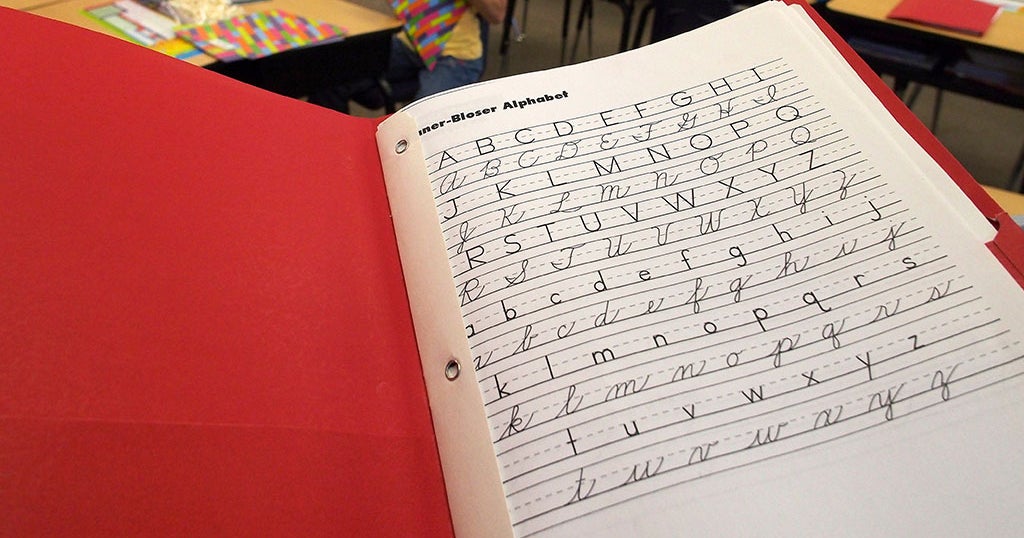 ner-Bloser Alphabet
A B C D E F G H I
A B C D E F G H I
J K L M N O P Q
J K L M N O P Q
R S T U V W X Y Z
R S T U V W X Y Z
a b c d e f g h i j
a b c d e f g h i j
k l m n o p q r s
k l m n o p q r s
t u v w x y z
t u v w x y z